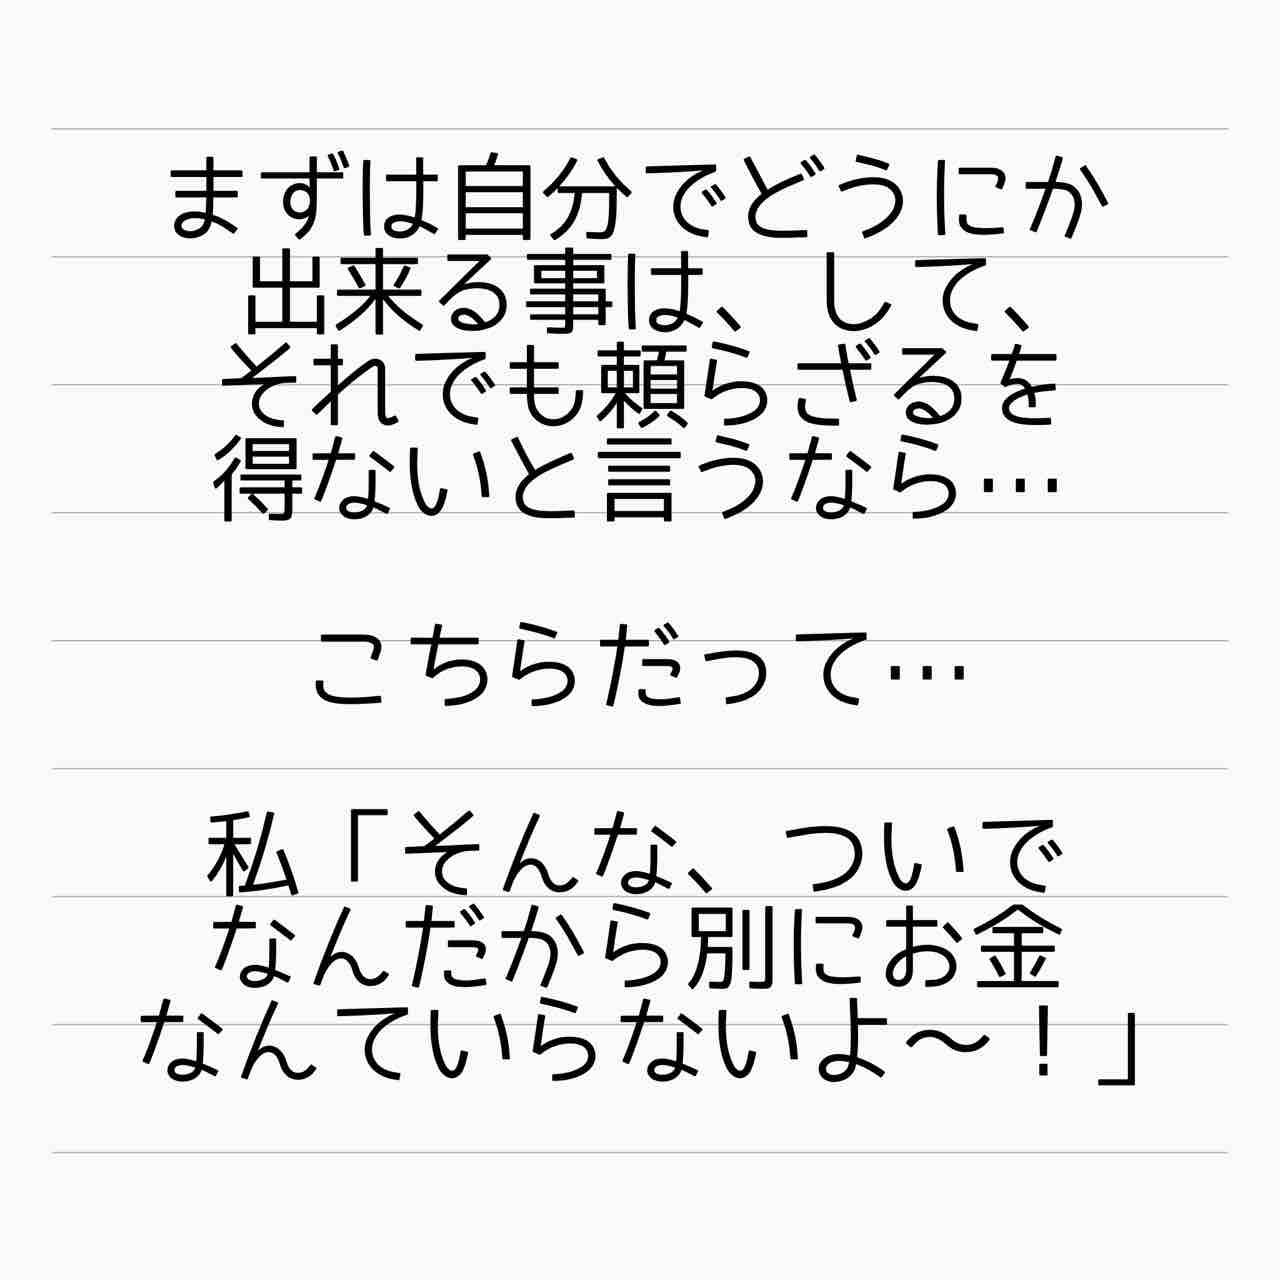 まずは自分でどうにか
出来る事は、して、
それでも頼らざるを
得ないと言うなら…
こちらだって…
私「そんな、ついで
なんだから別にお金
なんていらないよ〜！」